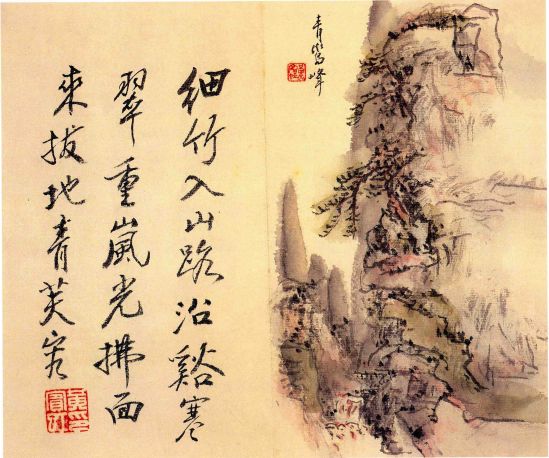 青鸞峰
細竹入山路沿谿寒
翠重嵐光拂面
來拔地青芙容